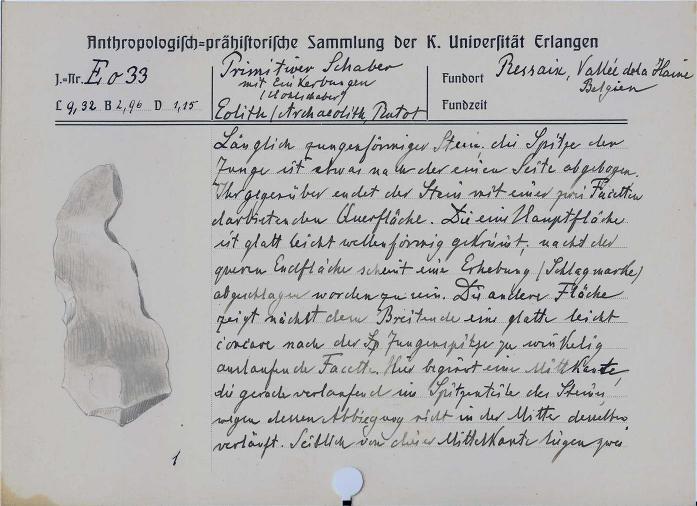 Anthropologisch-prähistorische Sammlung der K. Universität Erlangen
J.-Nr. Eo 33
L 9,32 B 2,96 D 1,15
Primitiver Schaber
mit Einkerbungen
(Hohlschaber)
Eolith (Archaeolith, Rutot
Fundort Ressaix, Vallée de la Haine
Belgien
Fundzeit
Länglich zungenförmiger Stein. die Spitze der
Zunge ist etwas nach der einen Seite abgebogen.
Ihr gegenüber endet der Stein mit einer zwei Facetten
darbietenden Querfläche. Die eine Hauptfläche
ist glatt leicht wellenförmig gekrümt, nächst der
queren Endfläche scheint eine Erhebung (Schlagmarke)
abgeschlagen worden zu sein. Die andere Fläche
zeigt nächst dem Breitende eine glatte leicht
concave nach der Zungenspitze zu winkelig
auslaufende Facette. Hier beginnt eine Mittelkante,
die gerade verlaufend im Spitzenteile des Steins,
wegen dessen Abbiegung nicht in der Mitte desselben
verläuft. Seitlich von dieser Mittelkante liegen zwei
1